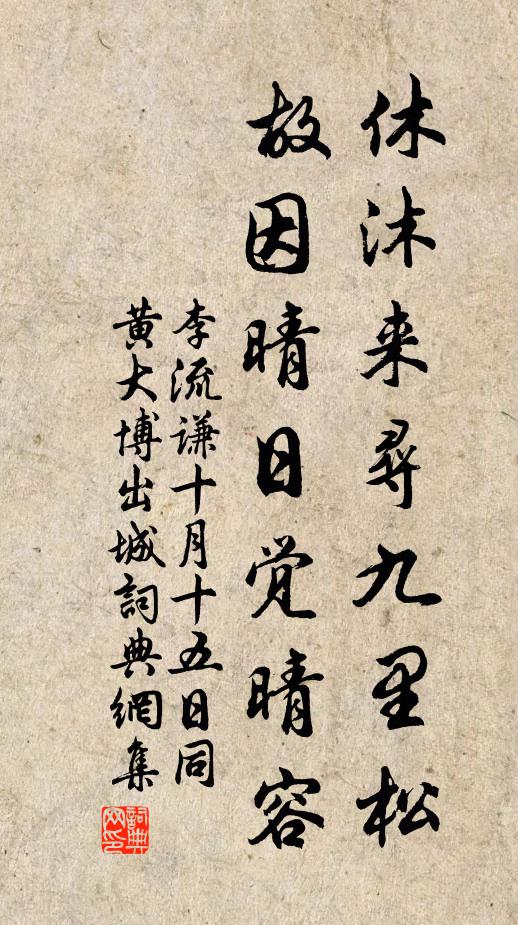 休沐来尋九里松
故因晴日觉晴容
李流谦十月十五日同
黄大博出城詞典網集
詞典
网印